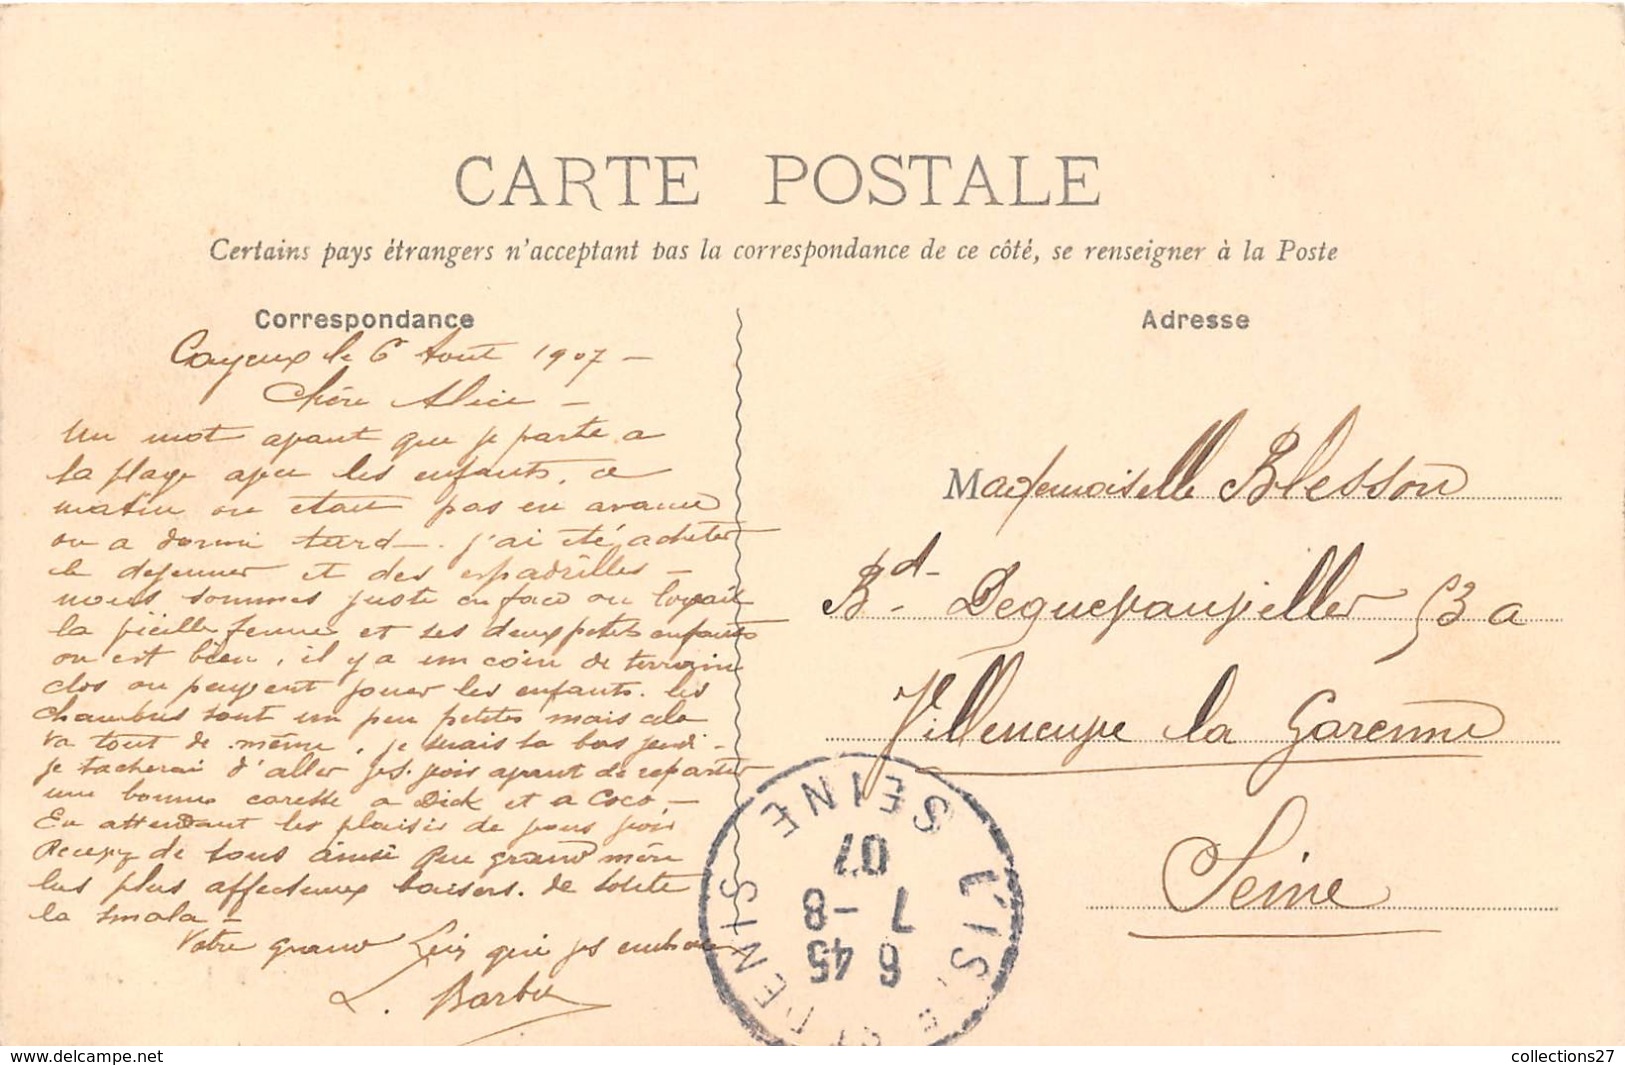 CARTE POSTALE
Certains pays étrangers n'acceptant pas la correspondance de ce côté, se renseigner à la Poste
Correspondance
Cayeux le 6 Aout 1907 –
Chère Alice –
Un mot avant que je parte a
la plage avec les enfants, ce
matin on etait pas en avance
on a dormi tard –. j'ai été acheter
le dejeuner et des espadrilles –
nous sommes juste en face ou logait
la vieille femme et ses deux petits enfants
on est bien, il y a un coin de terrain
clos ou peuvent jouer les enfants. les
chambres sont un peu petites mais cela
va tout de même, je serais la bas jeudi –
je tacherai d'aller vs. voir avant de repartir
une bonne caresse a Dick et a Coco –
En attendant les plaisir de vous voir
Recevez de tous ainsi que grand mère
les plus affectueux baisers. de toute
la smala –
Votre grand qui vs embrasse
L. Barbu
Adresse
Mademoiselle Blesson
Bd. Deguevauviller 53 a
Villeneuve la Garenne
Seine
L'ISLE ST DENIS SEINE
6 45
7 - 8
07
www.delcampe.net
collections27